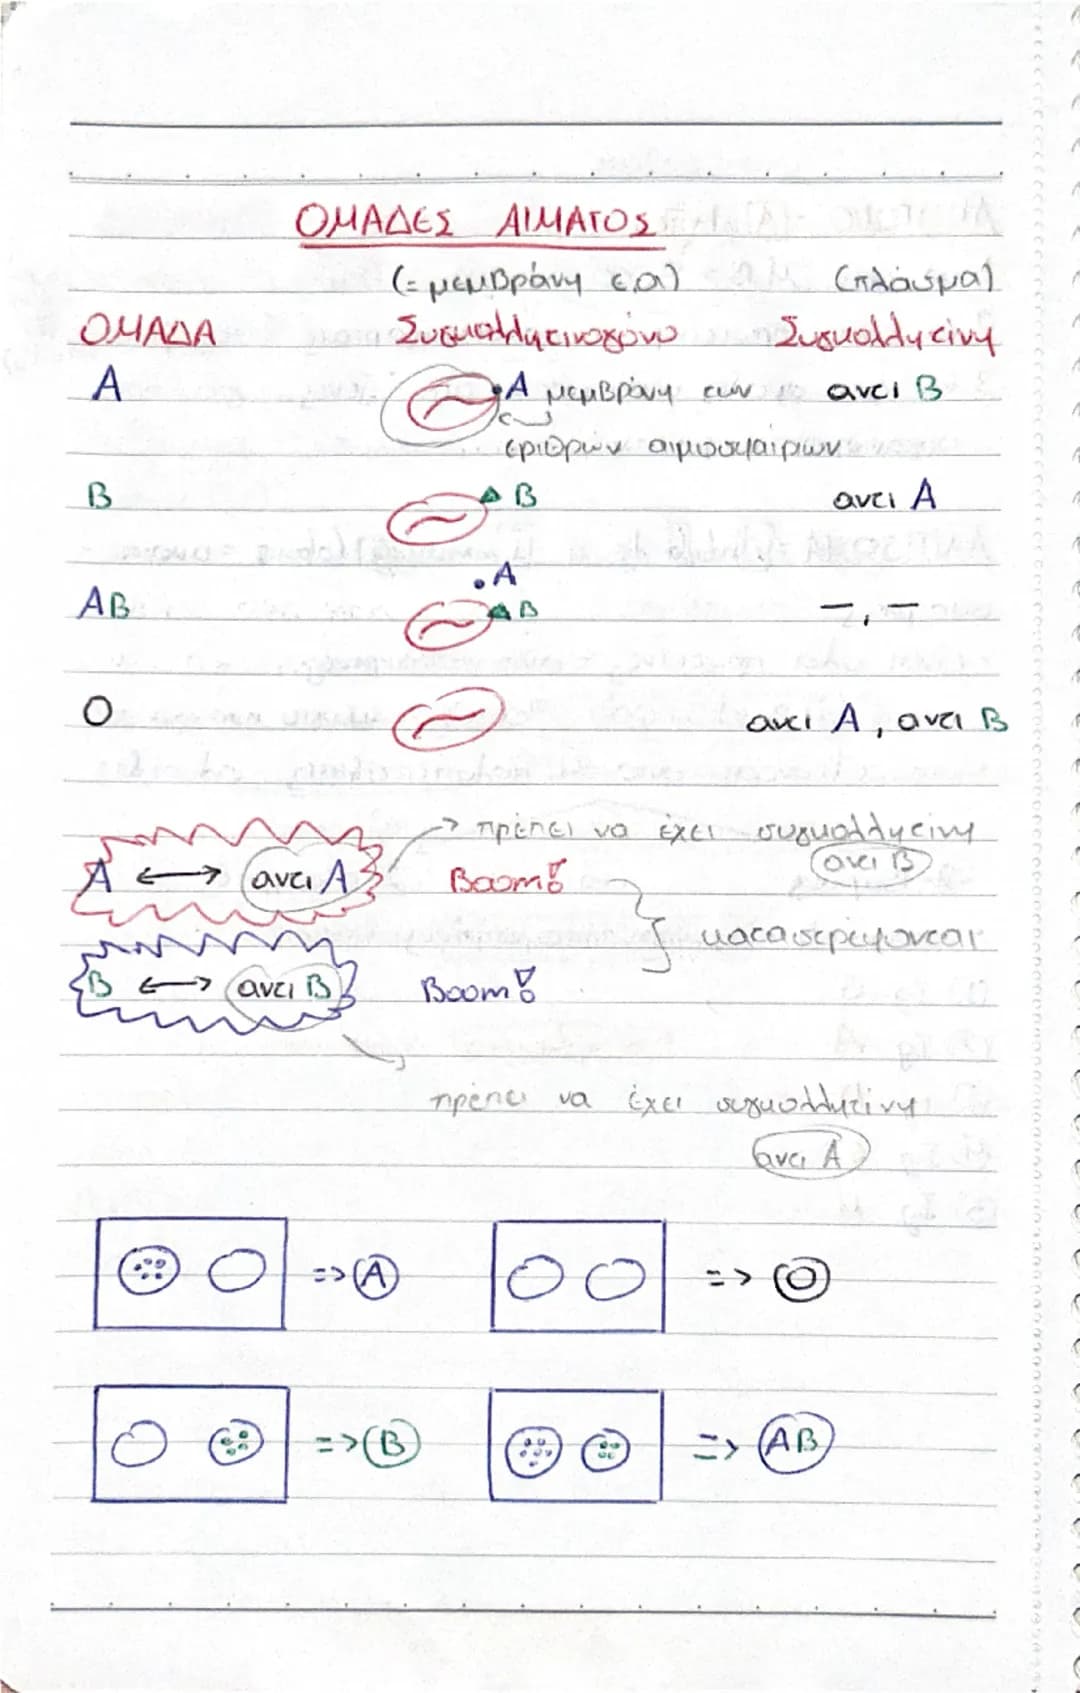 ΟΜΑΔΕΣ ΑΙΜΑΤΟΣ
(= μεμβράνη ε.α) (πλάσμα)
ΟΜΑΔΑ Συγκολλητινογόνο Συγκολλητίνη
Α Α μεμβράνη των αντι Β
εριθρών αιμοσφαίρων
Β Β αντι Α
Α
ΑΒ Β –, –
Ο αντι Α, αντι Β
→ πρέπει να έχει συγκολλητίνη
Α ↔ αντι Α Boom! αντι Β
καταστρέφονται
Β ↔ αντι Β Boom!
πρέπει να έχει συγκολλητίνη
αντι Α
=> Α => Ο
=> Β => ΑΒ